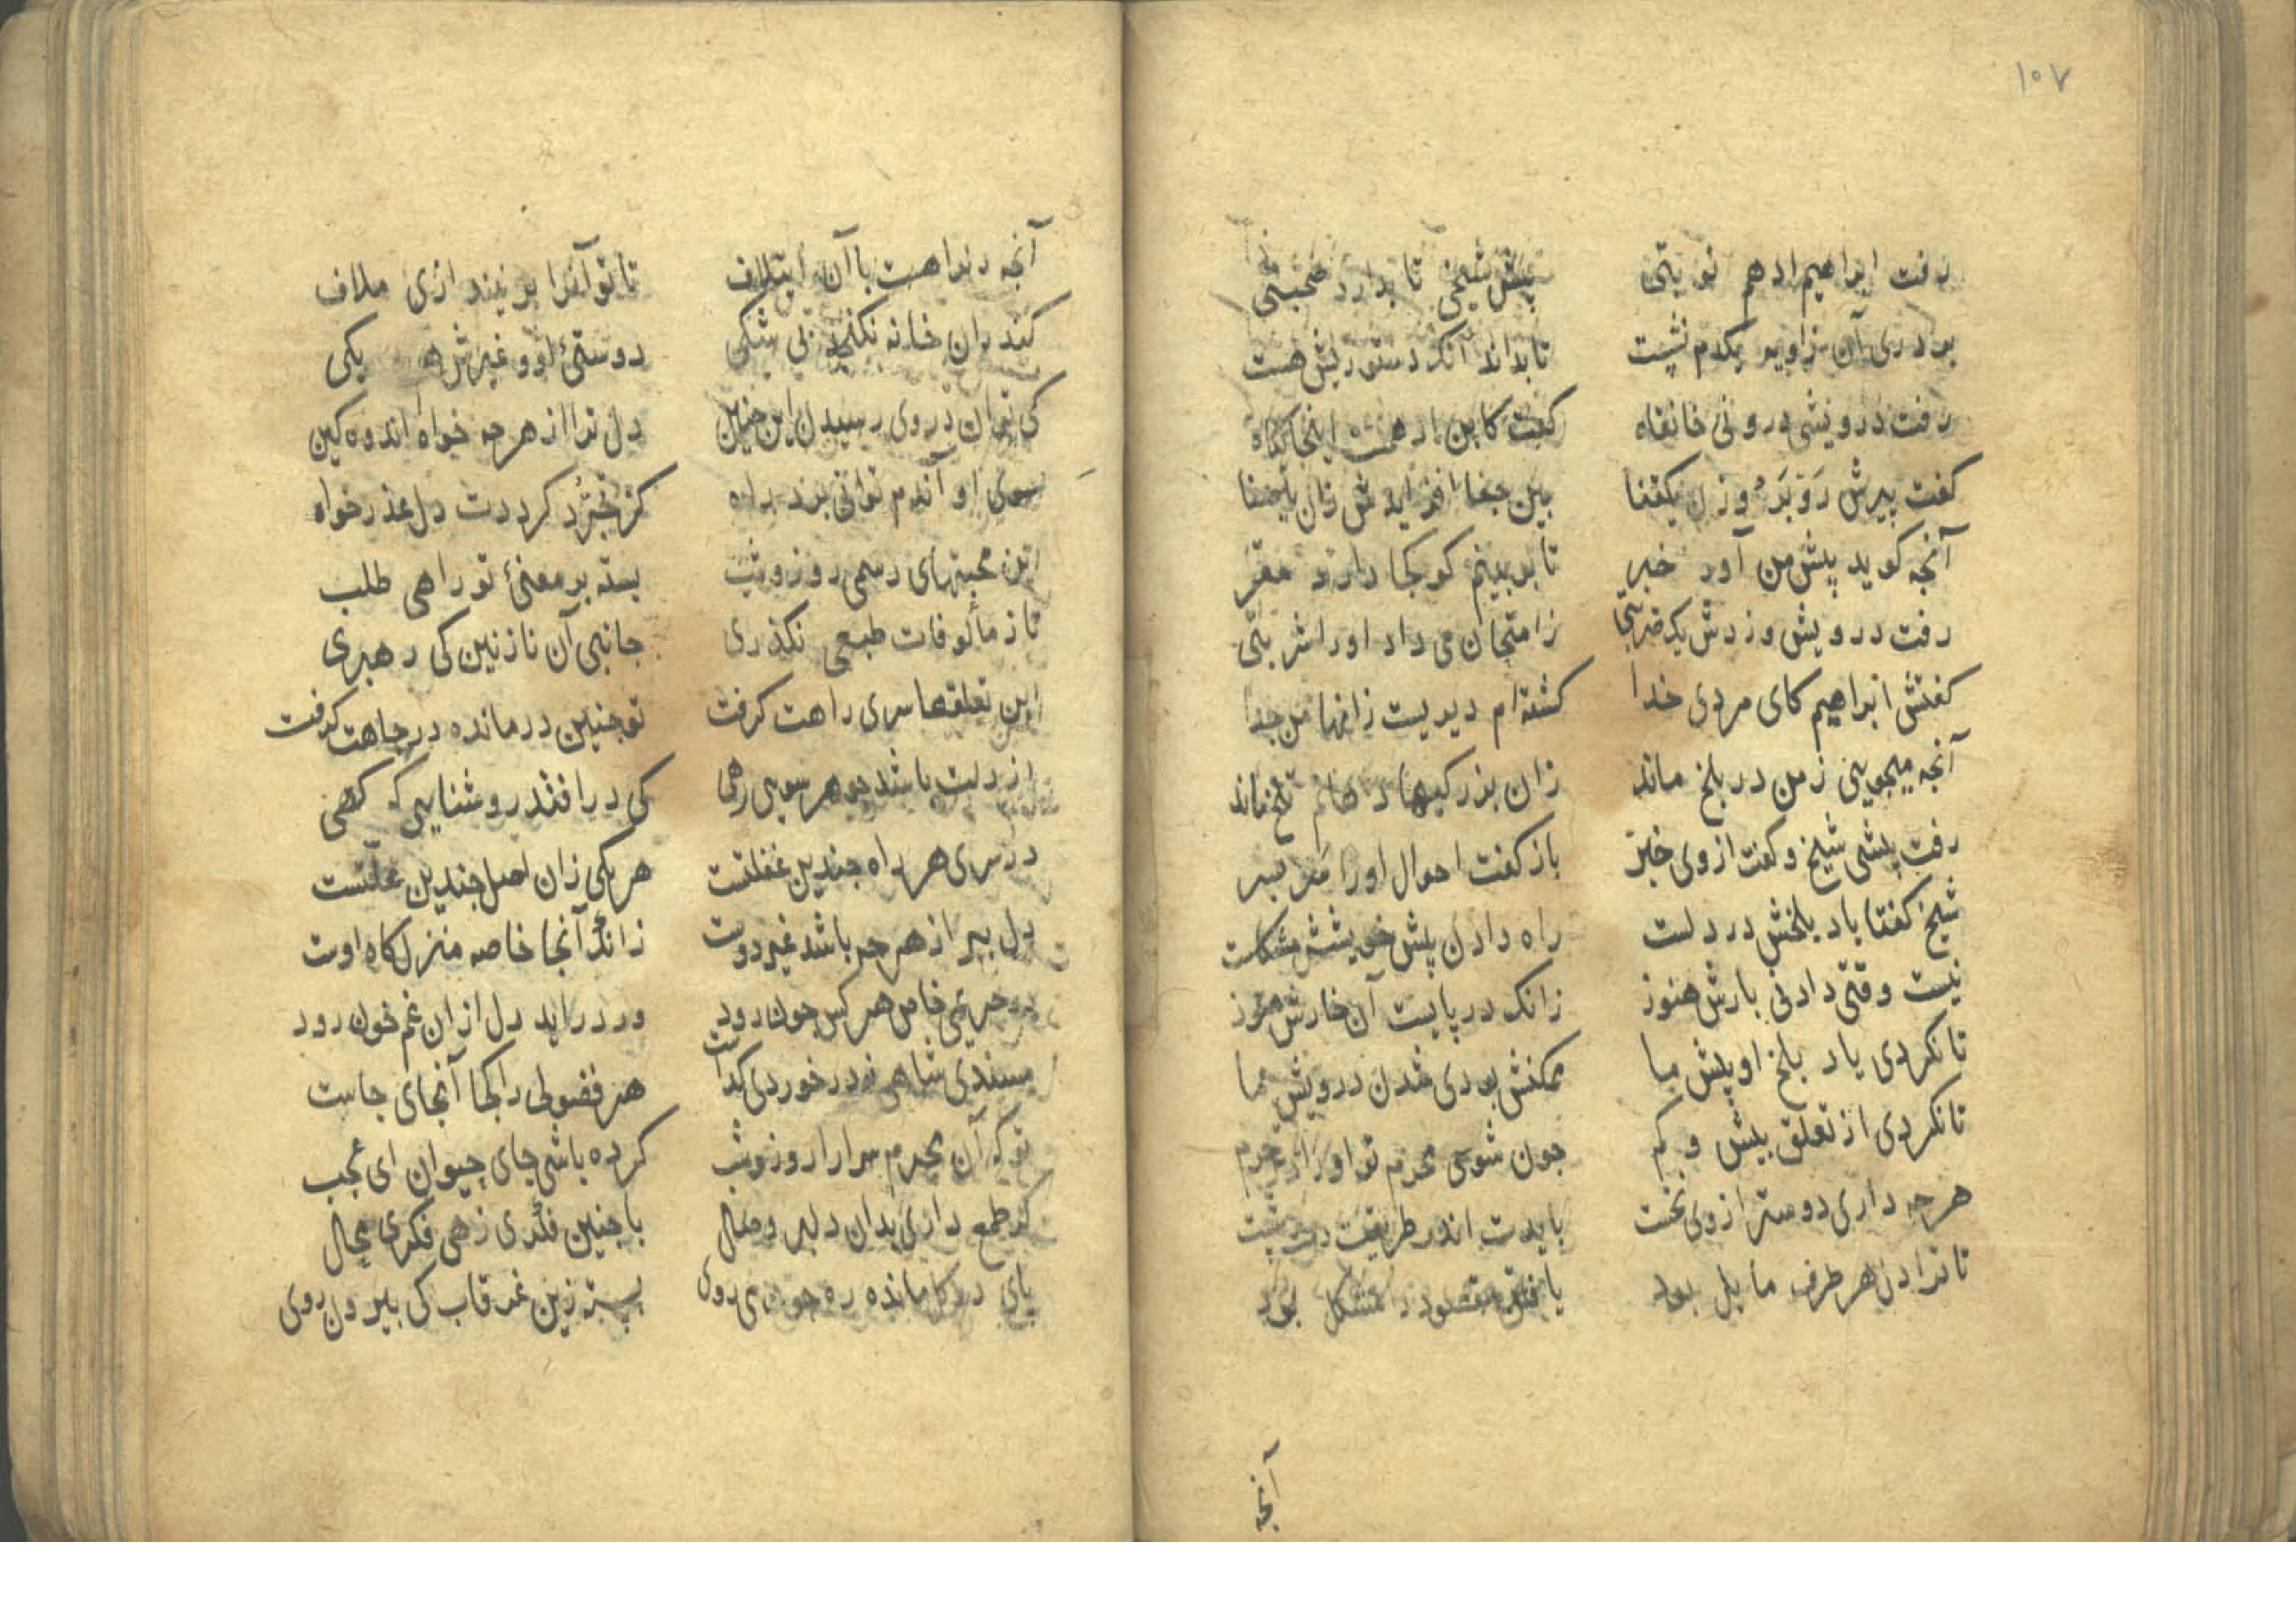 ۱۰۷
رفت ابراهیم ادهم نوبتی پیش شیخی تا بدارد صحبتی
بر دری آن زاویه یکدم نشست تا بداند آنک دستوریش هست
رفت درویشی درونی خانقاه کفت کابن ادهمت اینجا
کفت پیرش رو بر او زن یکقفا بین جفا افزایدش زان یا صفا
آنجه کوید پیش من آور خبر تا ببینم کو کجا دارد مقر
رفت درویش وزدش یک ضربتی زامتحان می داد اورا شربتی
کفتش ابراهیم کای مردی خدا کشته ام دیریست زانها من جدا
آنجه میجویی زمن در بلخ ماند زان بزرکیها تلخ ماند
رفت پیشی شیخ وکفت ازوی خبر باز کفت احوال اورا سر بسر
شیخ کفتا یاد بلخش در دلست راه دادن پیش خویشش مشکلست
نیست وقتی دادنی بارش هنوز زانک در پایست آن خارش هنوز
تا نکردی یاد بلخ او پیش ما ممکنش بودی شدن درویش ما
تا نکردی از تعلق بیش و کم جون شوی محرم تو اورا در حرم
هرجه داری دوستر ازوی نخست بایدت اندر طریقت دست شست
تا ترا دل هر طرف مایل بود یافتن مقصود را مشکل بود
آنجه
آنجه دلراهست با آن ایتلاف تا تو آنرا بر نیندازی ملاف
کندران خانه نکنجد بی شکی دوستئ او وغیرش هم یکی
کی توان در وی رسیدن این جنین دل ترا از هرجه خواه اندوه کین
سوی او آندم توانی برد راه کز تجرد کرددت دل عذر خواه
این محبتهای رسمی روز وشب بسته بر معنئ تو راهی طلب
تا ز مألوفات طبعی نکذری جانبی آن نازنین کی رهبری
این تعلقها سری راهت کرفت تو جنین درمانده در جاهت کرفت
از دلت باشد جو هر سویی رهی کی درافتد روشنایی که کهی
در سری هر راه جندین غفلتست هریکی زان اصل جندین علتست
دل ببر از هرجه باشد غیر دوست زانک آنجا خاصه منزلکاه اوست
در حریمی خاص هر کس جون رود ور دراید دل ازان غم خون رود
مسندی شاهی نه در خوردی کداست هر فضولی را کجا آنجای جاست
تو که آن محرم سرارا روز وشب کرده باشی جای حیوان ای عجب
کر طمع داری بدان دلبر وصال با جنین فکری زهی فکری محال
پای در کل مانده ره جون می روی بسته زین غرقاب کی بیرون روی